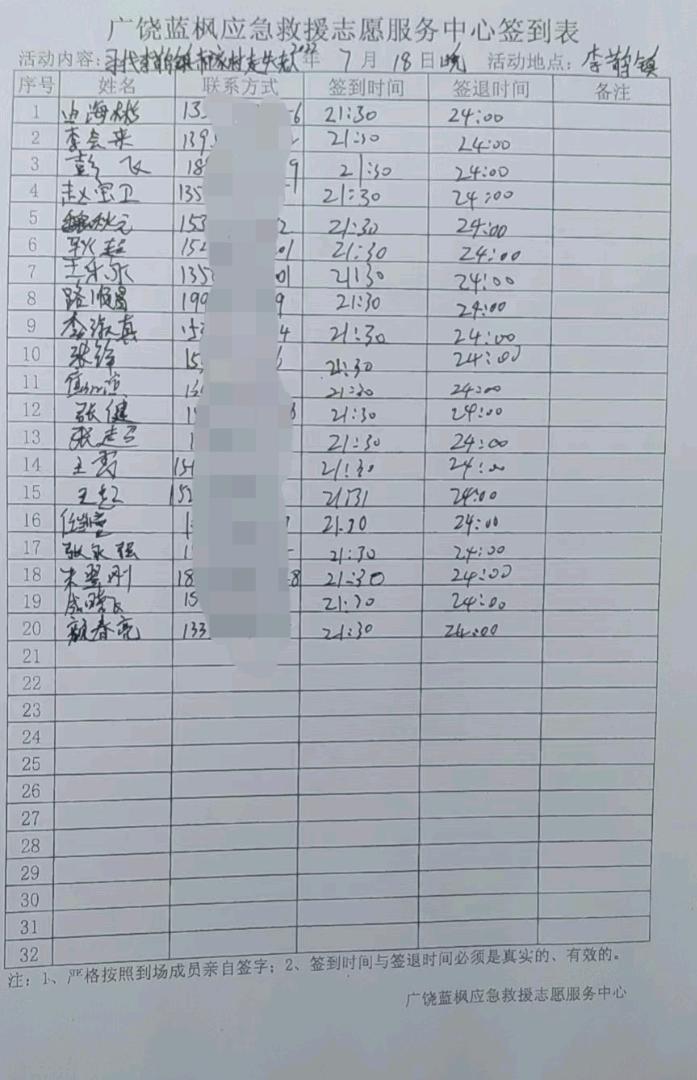 广饶蓝枫应急救援志愿服务中心签到表
活动内容: 年 7 月 18 日晚 活动地点: 李鹊镇
序号 姓名 联系方式 签到时间 签退时间 备注
1 13 6 21:30 24:00
2 李会来 139 21:30 24:00
3 彭飞 18 9 21:30 24:00
4 赵宝卫 135 21:30 24:00
5 153 2 21:30 24:00
6 152 01 21:30 24:00
7 135 01 21:30 24:00
8 路顺昌 199 9 21:30 24:00
9 李淑真 15 4 21:30 24:00
10 张锋 15 21:30 24:00
11 21:30 24:00
12 张健 1 8 21:30 24:00
13 1 21:30 24:00
14 王勇 151 21:30 24:00
15 152 21:31 24:00
16 1 21:30 24:00
17 张永强 1 21:30 24:00
18 朱翠刚 18 8 21:30 24:00
19 15 21:30 24:00
20 133 21:30 24:00
21
22
23
24
25
26
27
28
29
30
31
32
注:1、严格按照到场成员亲自签字;2、签到时间与签退时间必须是真实的、有效的。
广饶蓝枫应急救援志愿服务中心